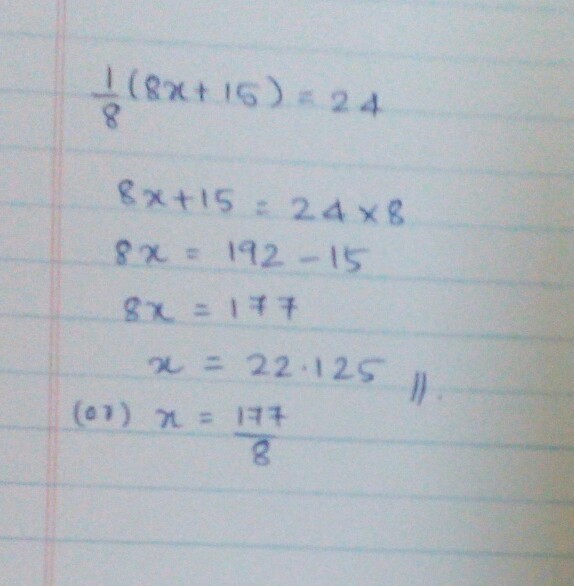 1/8 (8x + 15) = 24
8x + 15 = 24 × 8
8x = 192 - 15
8x = 177
x = 22.125 //.
(or) x = 177/8